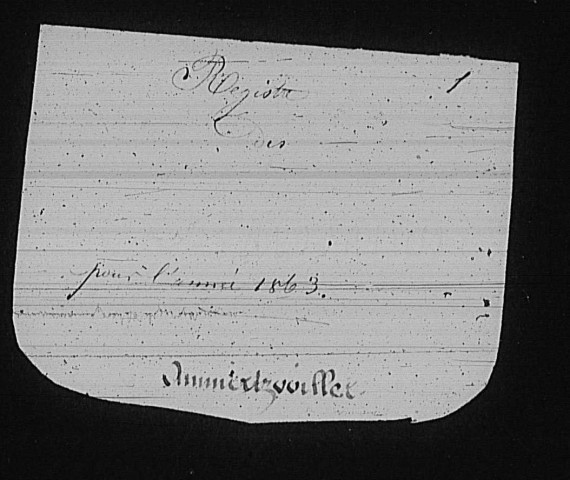 Registre 1
des
pour l'année 1863.
Ammertzwiller